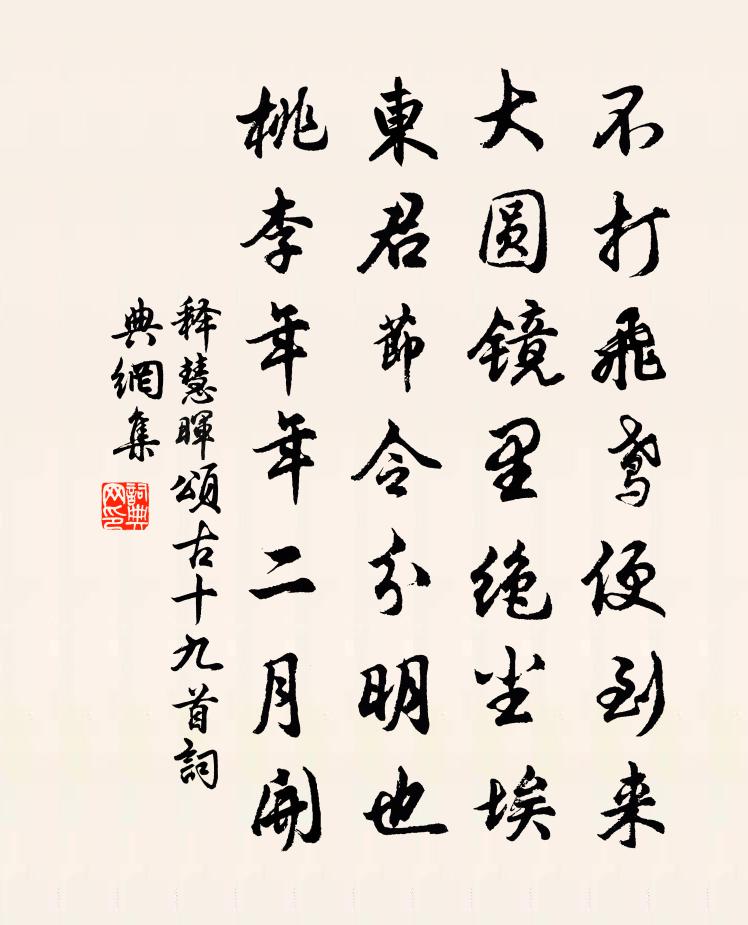 不打飛鳶便到来
大圓镜里绝尘埃
東君節令分明也
桃李年年二月開
释慧暉頌古十九首詞
典網集
詞典网印